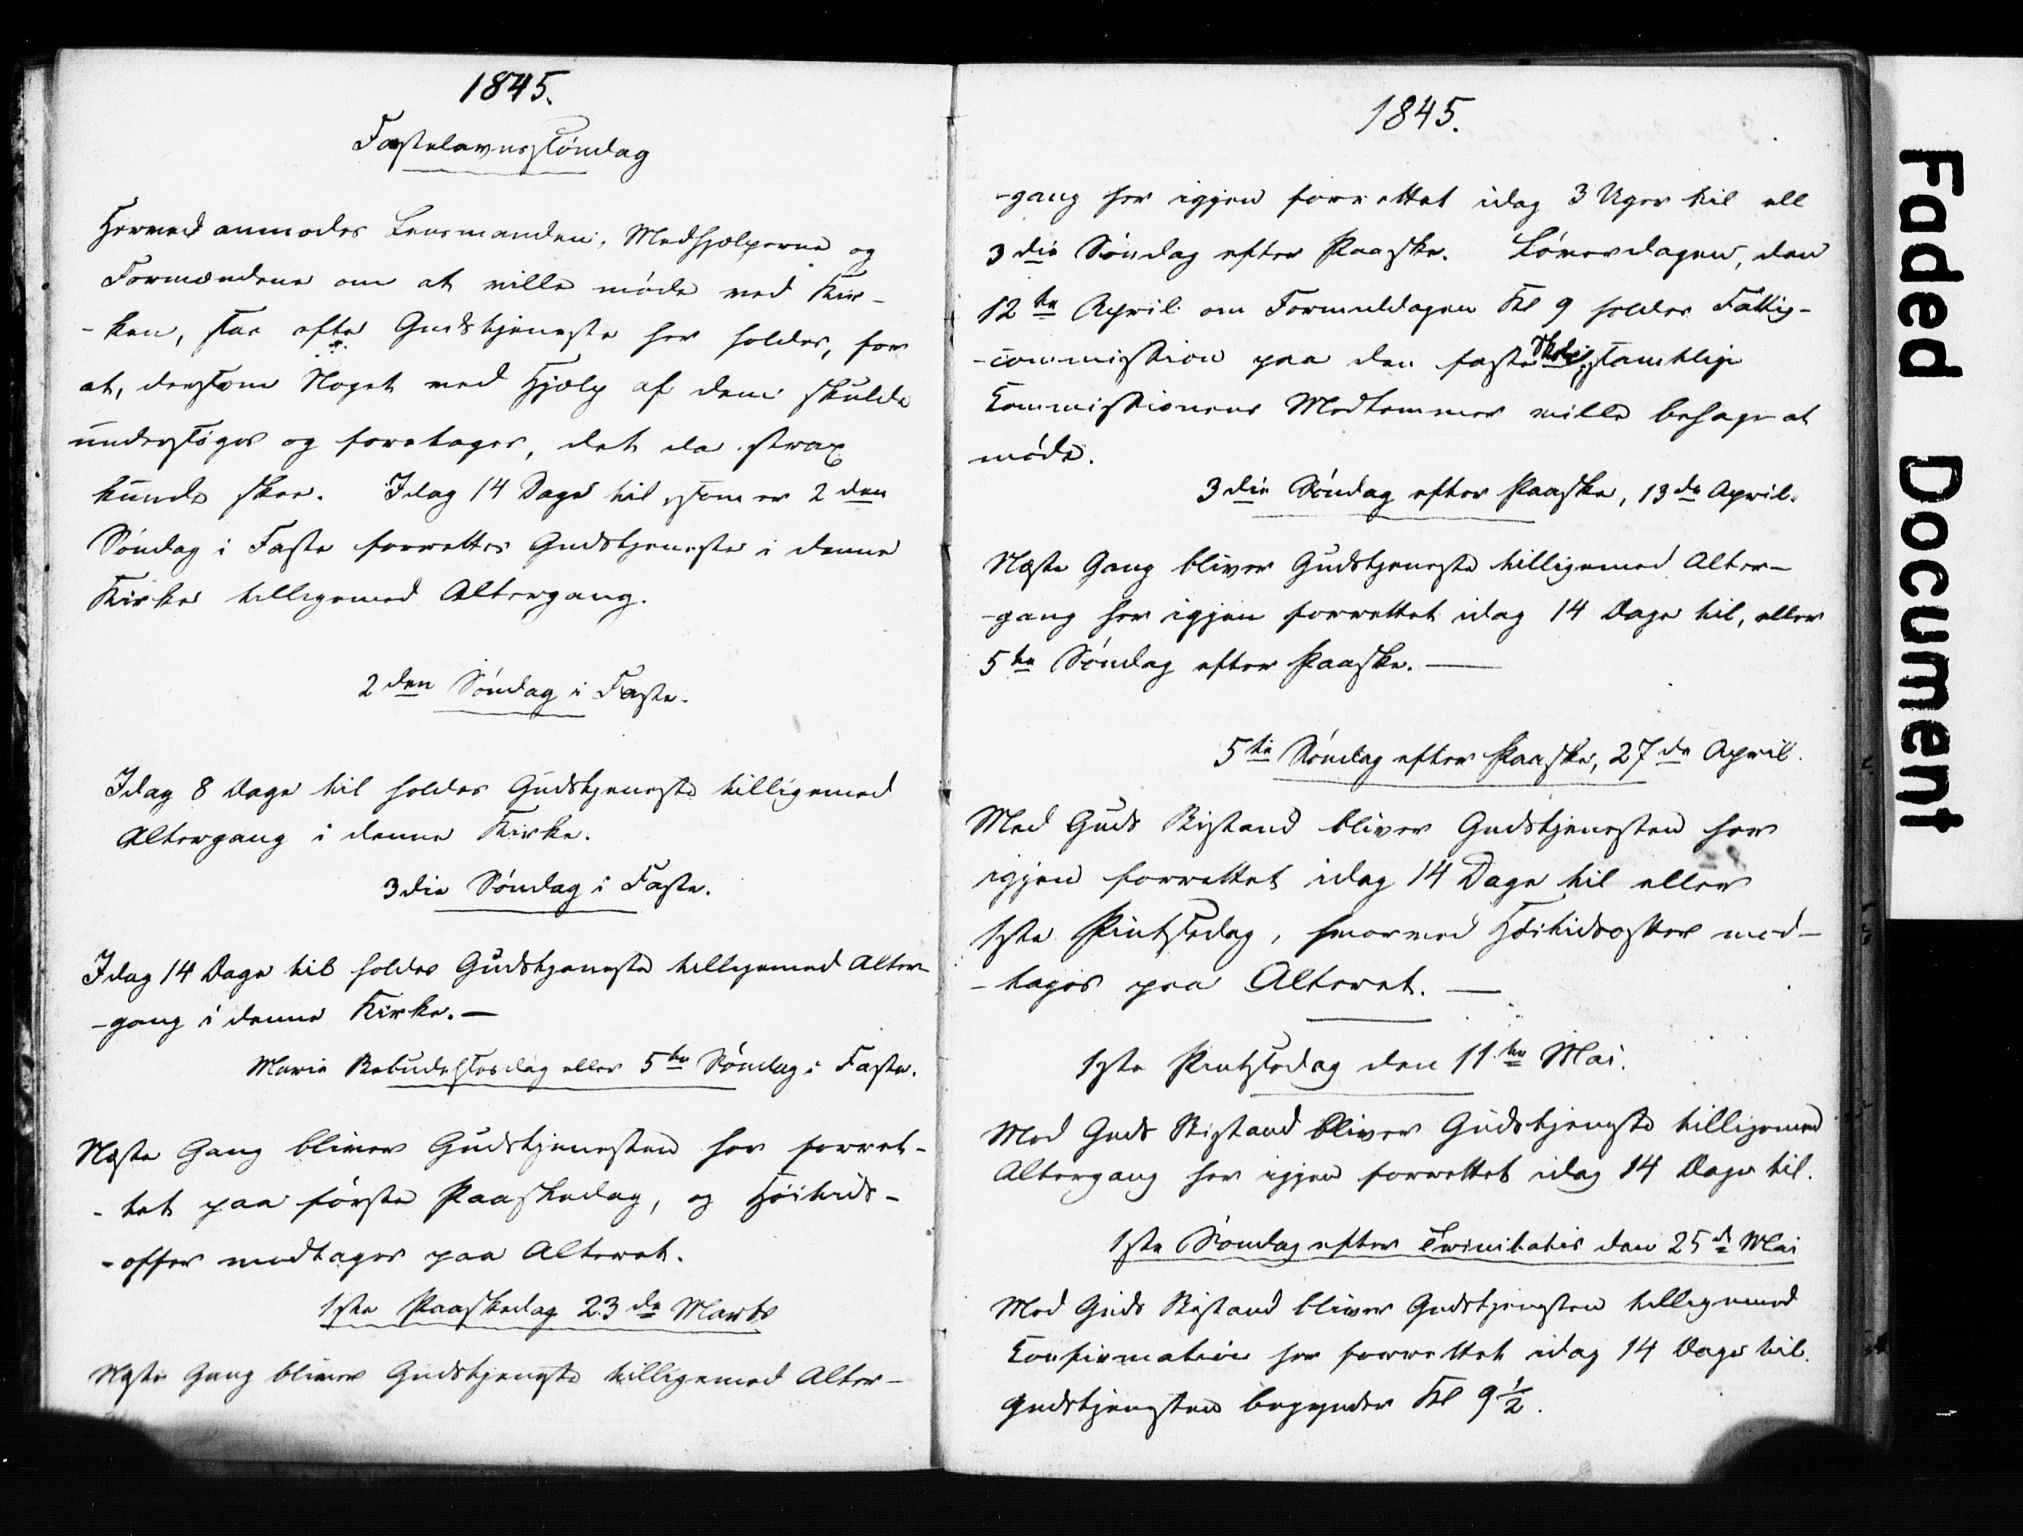 1845.
Fastelavnssöndag
Herved anmodes Lensmanden, Medhjælperne og
Formændene om at ville möde ved Kir-
-ken, saa ofte Gudstjeneste her holdes, for
at, dersom Noget ved Hjælp af dem skulde
undersöges og foretages, det da strax
kunde skee. Idag 14 Dage til, som er 2den
Söndag i Faste forrettes Gudstjeneste i denne
Kirke tilligemed Altergang.
2den Söndag i Faste.
Idag 8 Dage til holdes Gudstjeneste tilligemed
Altergang i denne Kirke.
3die Söndag i Faste.
Idag 14 Dage til holdes Gudstjeneste tilligemed Alter-
-gang i denne Kirke. —
Marie Bebudelsesdag eller 5te Söndag i Faste.
Næste Gang bliver Gudstjenesten her forret-
-tet paa förste Paaskedag, og Höitids-
-offer modtages paa Alteret.
1ste Paaskedag 23de Marts
Næste Gang bliver Gudstjeneste tilligemed Alter-
1845.
-gang her igjen forrettet idag 3 Uger til ell
3die Söndag efter Paaske. Löverdagen, den
12te April om Formiddagen Kl 9 holdes Fattig-
-commission paa den faste samtlige
Commissionens Medlemmer ville behage at
möde.
3die Söndag efter Paaske, 13de April.
Næste Gang bliver Gudstjeneste tilligemed Alter-
-gang her igjen forrettet idag 14 Dage til, eller
5te Söndag efter Paaske. —
5te Söndag efter Paaske, 27de April.
Med Guds Bistand bliver Gudstjenesten her
igjen forrettet idag 14 Dage til eller
1ste Pintsedag, hvorved Höitidsoffer mod-
-tages paa Alteret. —
1ste Pintsedag den 11te Mai.
Med Guds Bistand bliver Gudstjeneste tilligemed
Altergang her igjen forrettet idag 14 Dage til.
1ste Söndag efter Trinitatis den 25de Mai
Med Guds Bistand bliver Gudstjenesten tilligemed
Confirmation her forrettet idag 14 Dage til.
Gudstjenesten begynder Kl 9 1/2.
Faded Document